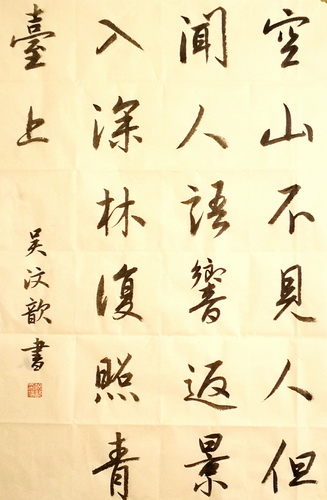 空山不見人但
聞人語響返景
入深林復照青
臺上
吴汶歆書